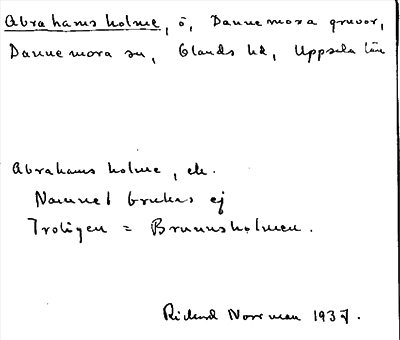 Abrahamsholme, ö, Dannemora gruvor,
Dannemora sn, Olands hd, Uppsala län
Abrahamsholme, ek.
Namnet brukas ej
Troligen = Brunnsholmen.
Rickard Norrman 1937.